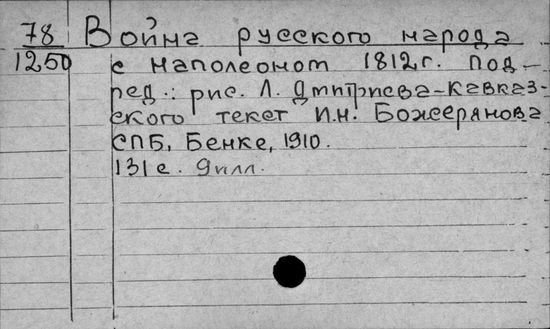 78 Война русского народа
1250 с наполеоном 1812г. Под-
ред.: рис. Л. Дмитриева-Кавказ-
ского текст И.Н. Божерянова
СПБ, Бенке, 1910.
131с. 9илл.